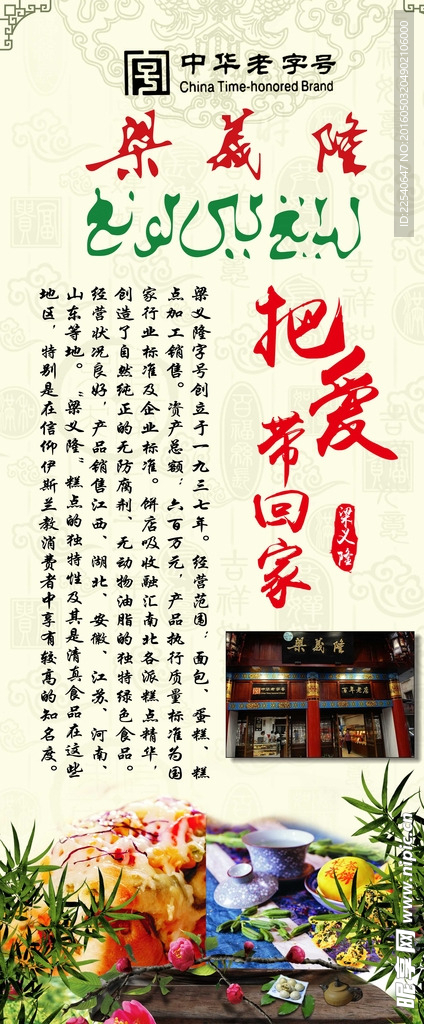 中华老字号
China Time-honored Brand
梁義隆
把爱
带回家
梁义隆
梁义隆字号创立于一九三七年。经营范围：面包、蛋糕、糕
点加工销售。资产总额：六百万元，产品执行质量标准为国
家行业标准及企业标准。饼店吸收融汇南北各派糕点精华，
创造了自然纯正的无防腐剂、无动物油脂的独特绿色食品。
经营状况良好，产品销售江西、湖北、安徽、江苏、河南、
山东等地。“梁义隆”糕点的独特性及其是清真食品在这些
地区，特别是在信仰伊斯兰教消费者中享有较高的知名度。
梁義隆
中华老字号
百年老店
ID:22540647 NO:20160503204902106000
昵享网 www.nipic.cn